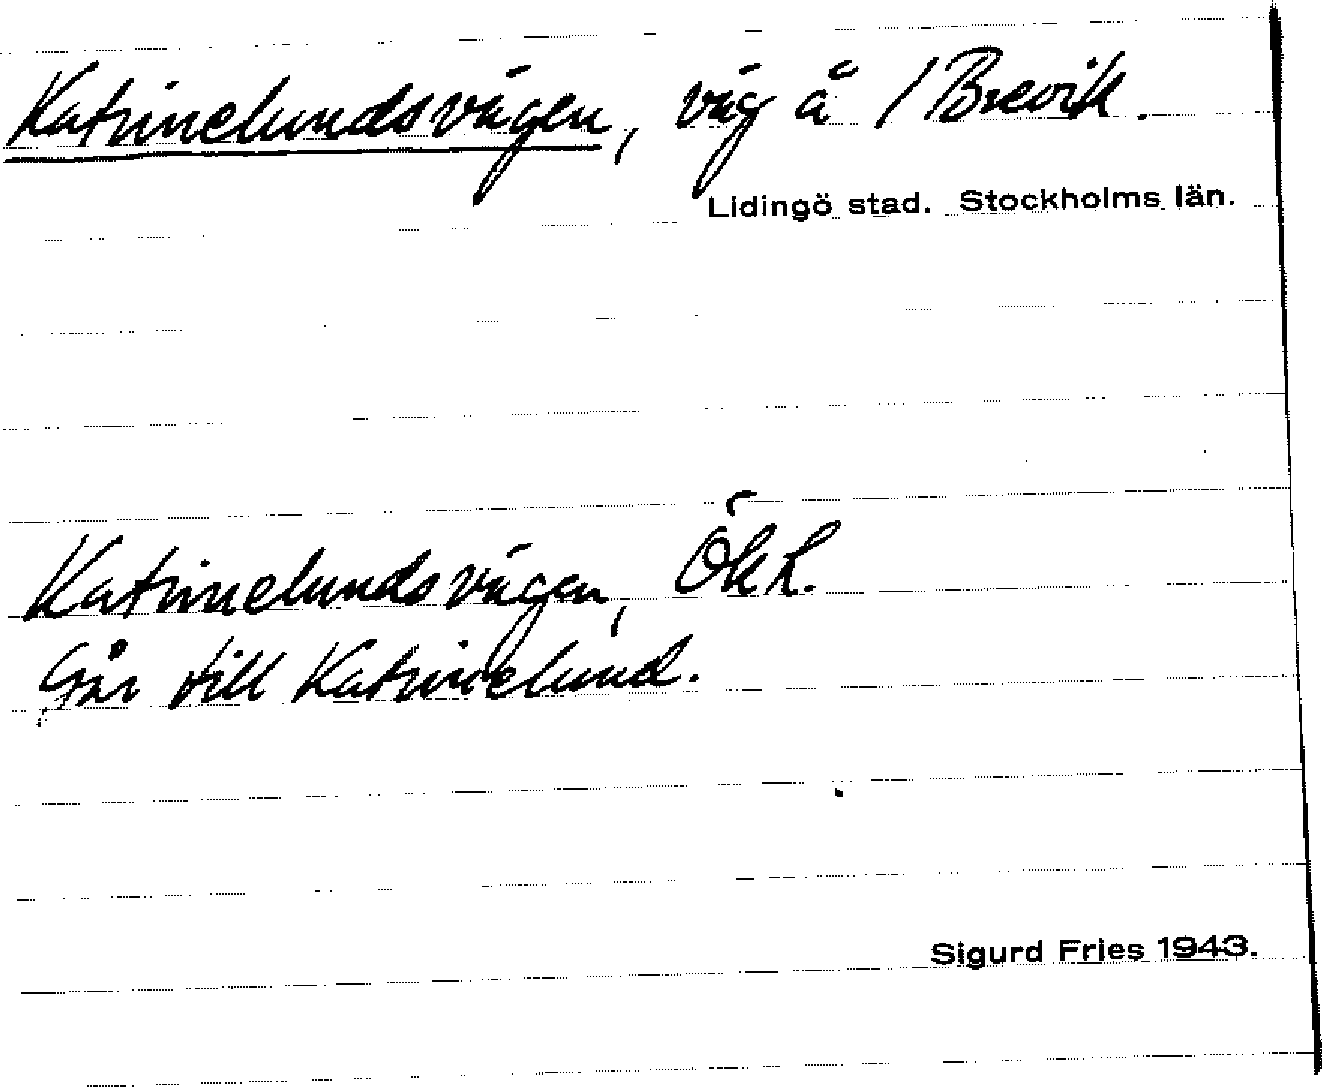 Katrinelundsvägen, väg å / Brevik.
Lidingö stad. Stockholms län.
Katrinelundsvägen, ÖkL.
Går till Katrinelund.
Sigurd Fries 1943.